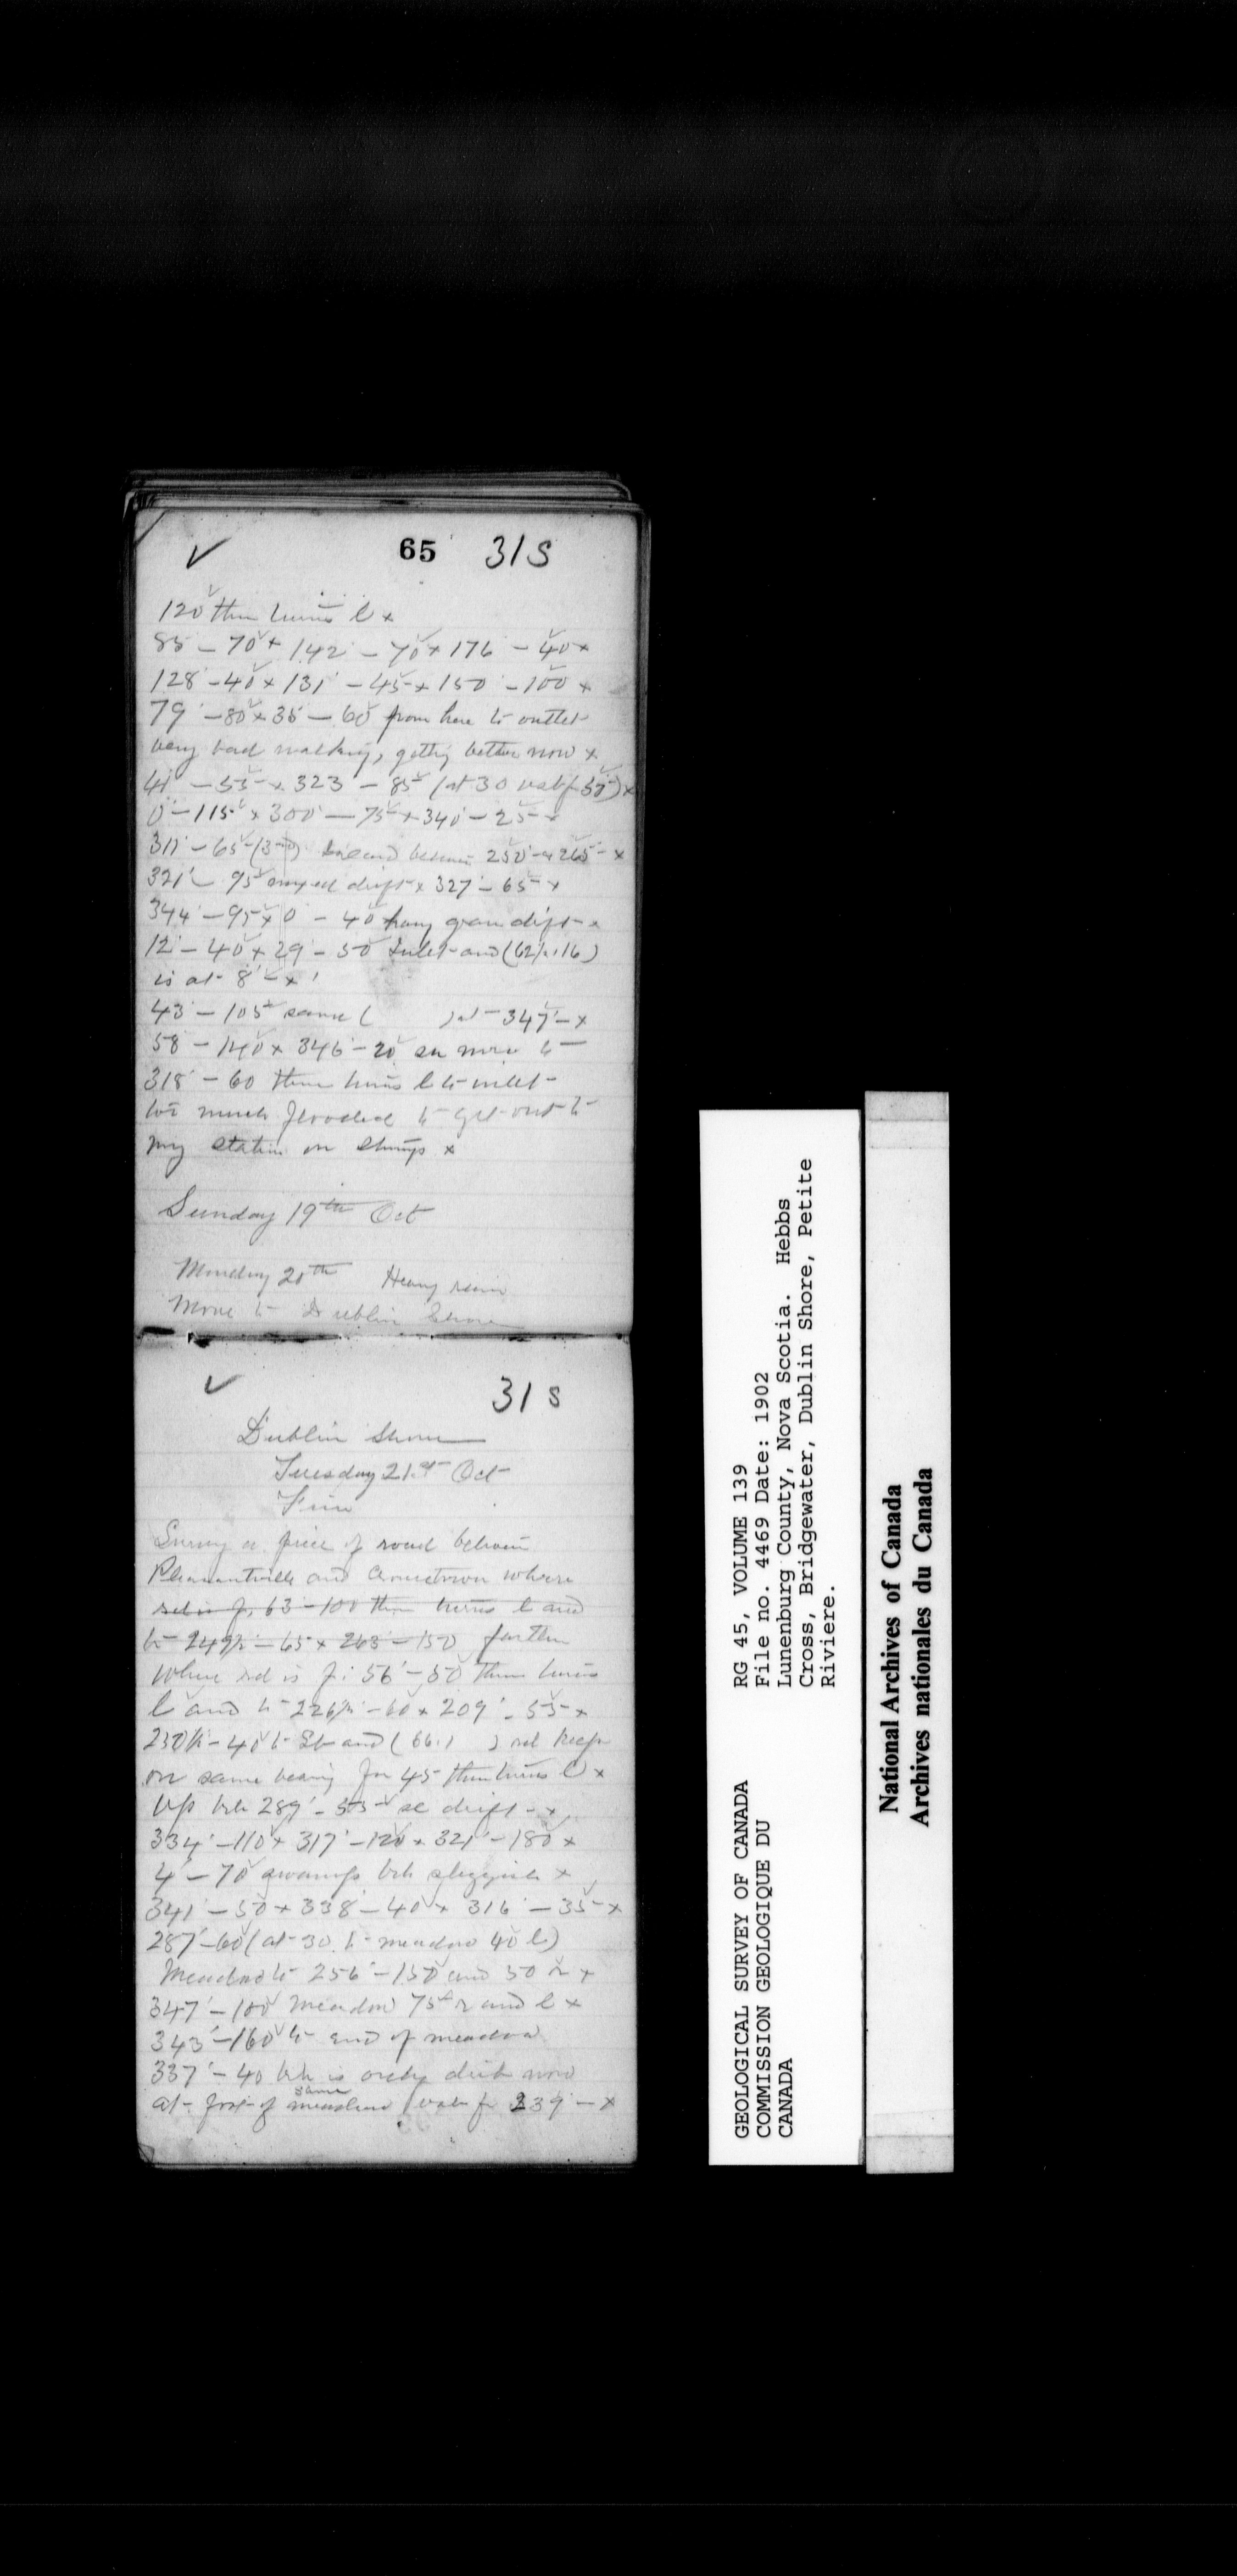 65 31 S
120 then turns l x
85 - 70 x 142 - 70 x 176 - 40 x
128 - 40 x 131 - 45 x 150 - 100 x
79 - 80 x 35 - 60 from here to outlet
very bad walking, getting better now x
41 - 55 x 323 - 85 (at 30
0 - 115 x 300 - 75 x 340 - 25 x
311 - 65 Island between 250 - & 265 - x
321 - 95 drift x 327 - 65 x
344 - 95 x 0 - 40 drift x
12 - 40 x 29 - 50 Inlet and (62
is at 8 - x
43 - 105 same ( ) at 347 - x
58 - 140 x 346 - 20 to
318 - 60 then turns l to inlet
too much flooded to get out to
my station on stumps x
Sunday 19th Oct
Monday 20th Heavy rain
Move to Dublin Shore
31 S
Dublin Shore
Tuesday 21st Oct
Fine
Survey a piece of road between
Pleasantville and Crousetown where
rd is f. 63 - 100 then turns l and
to 249 - 65 x 263 - 150 further
where rd is f. 56 - 50 then turns
l and to 226 - 60 x 209 - 55 x
230 - 40 to St and (66. ) rd keeps
on same bearing for 45 then turns l x
Up brk 289 - 55 drift - x
334 - 110 x 317 - 120 x 321 - 180 x
4 - 70 swamp brk sluggish x
341 - 50 x 338 - 40 x 316 - 35 x
287 - 60 (at 30 to meadow 40 l)
Meadow to 256 - 150 and 50 r x
347 - 100 meadow 75 r and l x
343 - 160 to end of meadow
337 - 40 brk is only ditch now
at foot of same meadow 239 - x
GEOLOGICAL SURVEY OF CANADA
COMMISSION GEOLOGIQUE DU
CANADA
RG 45, VOLUME 139
File no. 4469 Date: 1902
Lunenburg County, Nova Scotia. Hebbs
Cross, Bridgewater, Dublin Shore, Petite
Riviere.
National Archives of Canada
Archives nationales du Canada